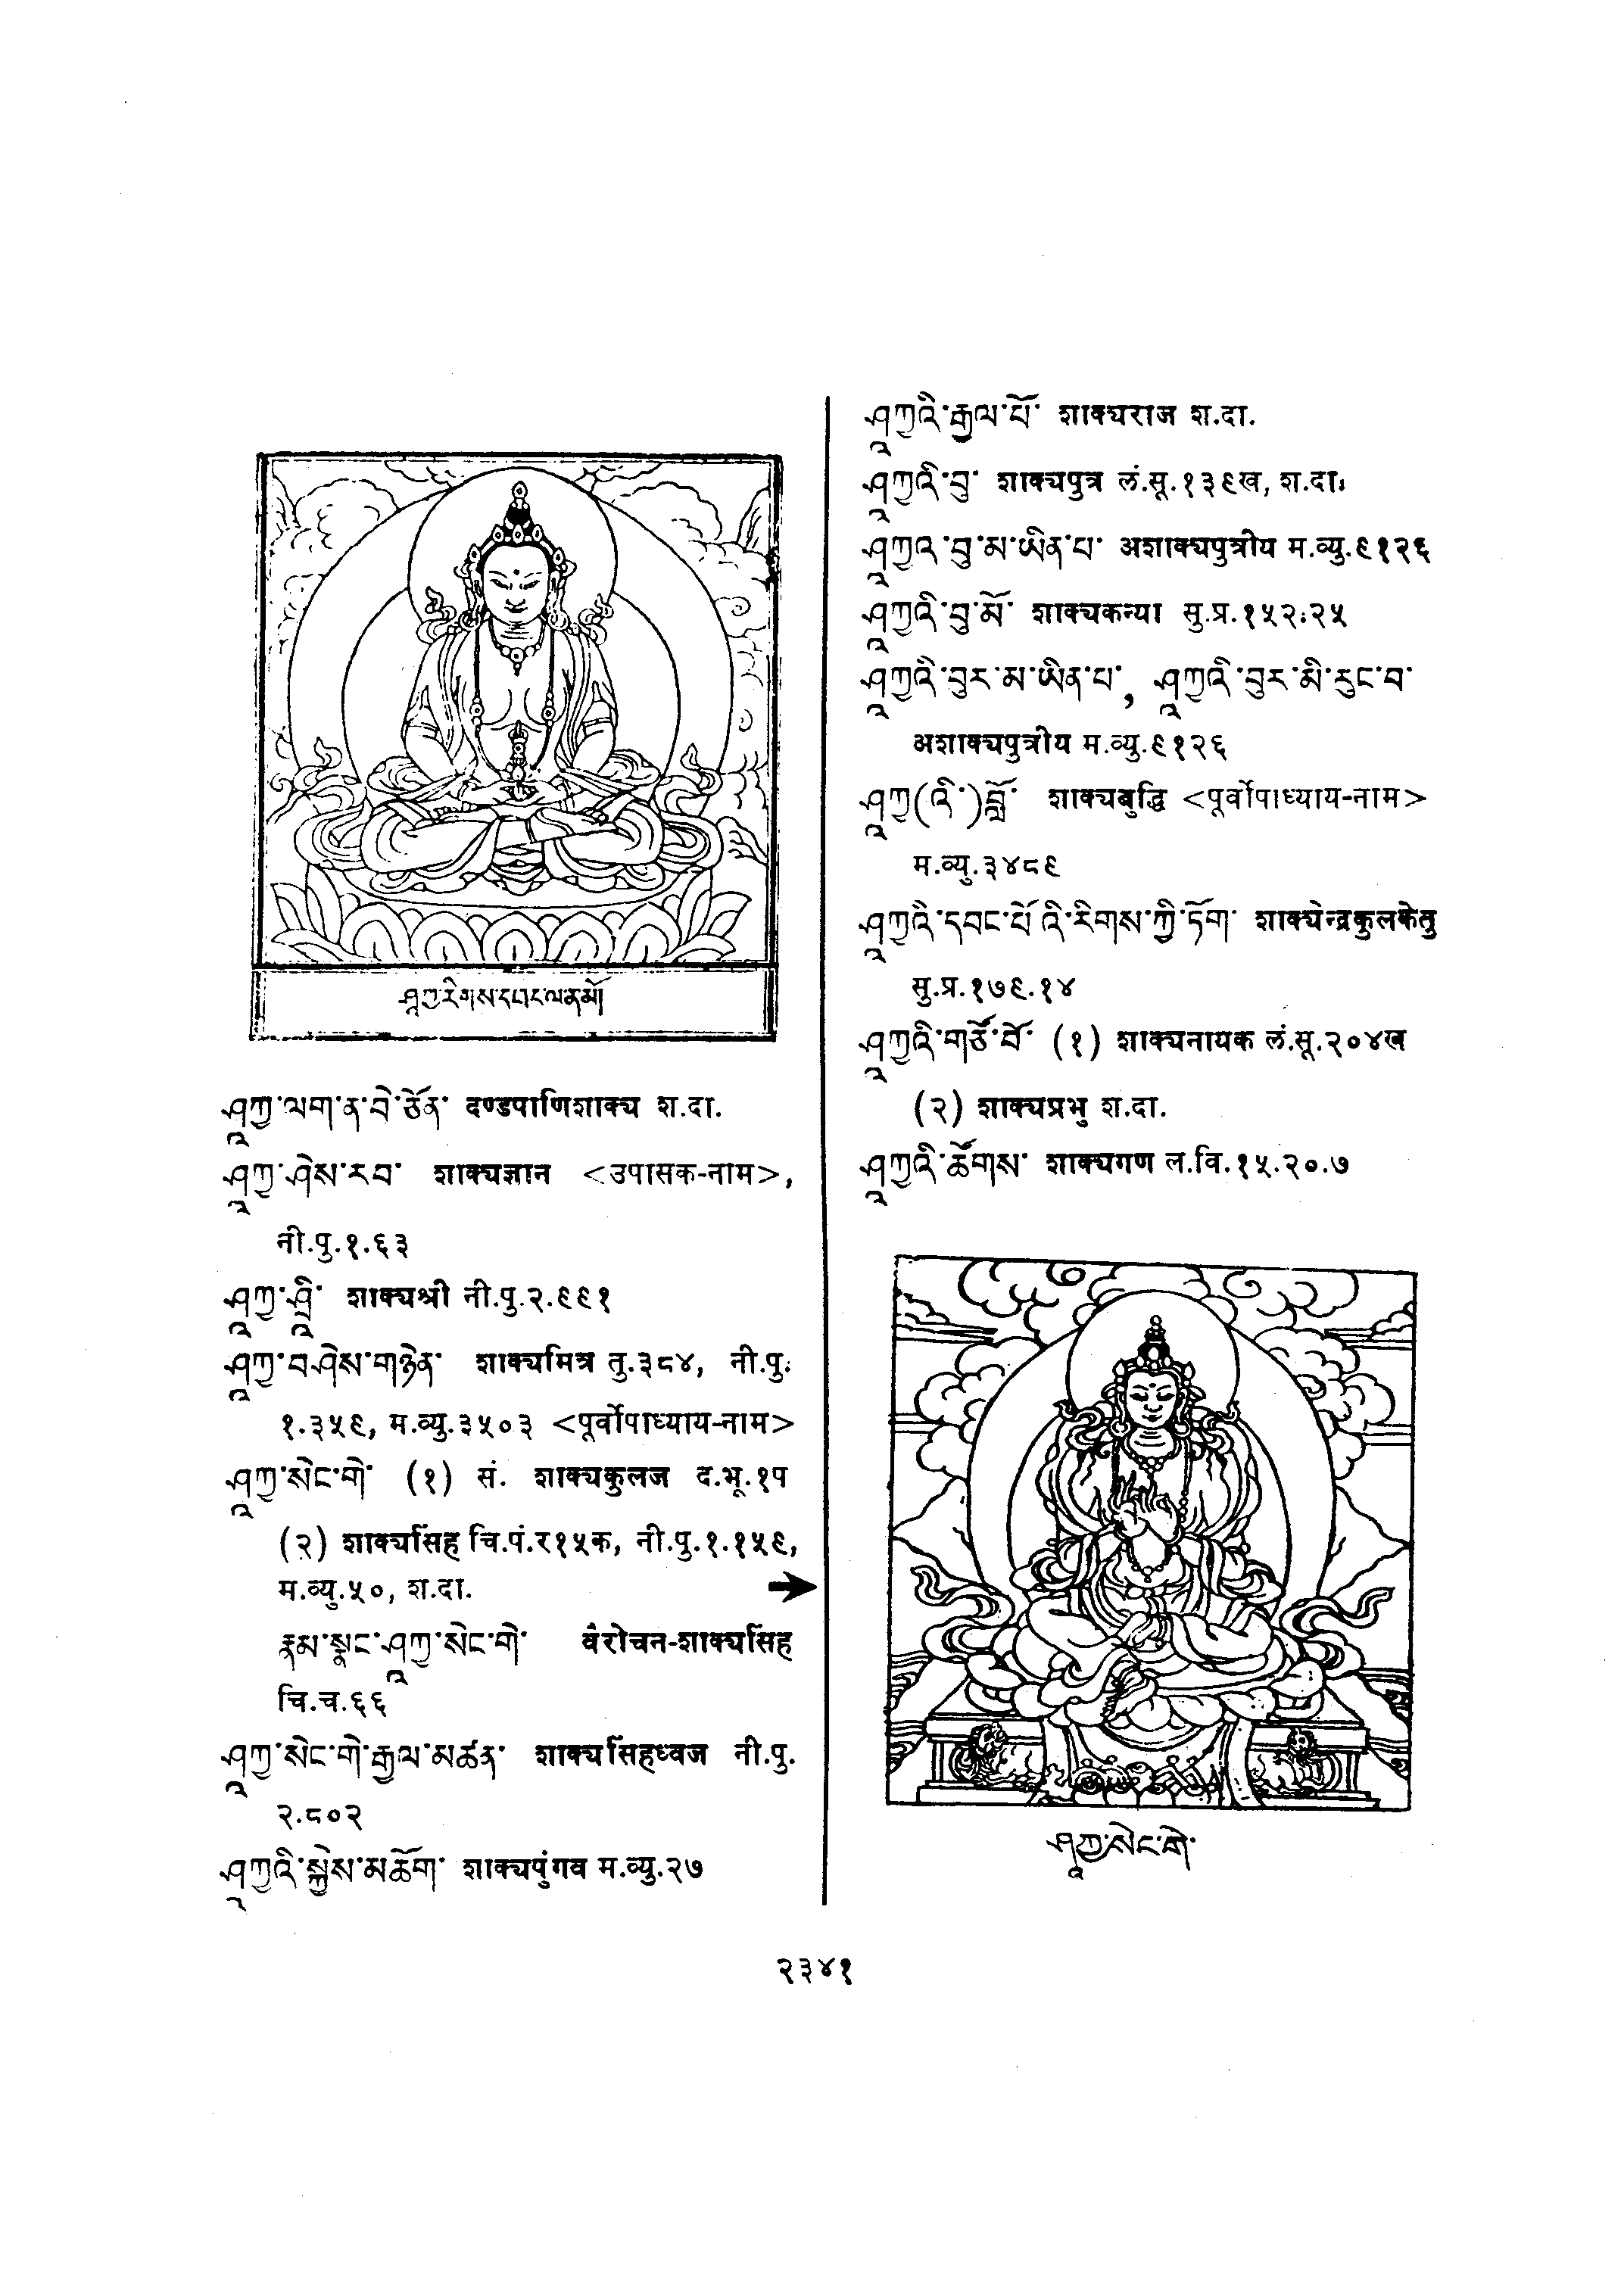 ཤཱཀྱ་རིགས་དབང་ལ་ན་མོ།
ཤཱཀྱ་ལག་ན་བེ་ཅོན་ दण्डपाणिशाक्य श.दा.
ཤཱཀྱ་ཤེས་རབ་ शाक्यज्ञान <उपासक-नाम>,
नी.पु.१.६३
ཤཱཀྱ་ཤྲཱི་ शाक्यश्री नी.पु.२.९९१
ཤཱཀྱ་བཤེས་གཉེན་ शाक्यमित्र तु.३८४, नी.पु.
१.३५९, म.व्यु.३५०३ <पूर्वोपाध्याय-नाम>
ཤཱཀྱ་སེང་གེ་ (१) सं. शाक्यकुलज द.भू.१प
(२) शाक्यसिंह चि.पं.र१५क, नी.पु.१.१५९,
म.व्यु.५०, श.दा.
རྣམ་སྣང་ཤཱཀྱ་སེང་གེ་ वैरोचन-शाक्यसिंह
चि.च.६६
ཤཱཀྱ་སེང་གེ་རྒྱལ་མཚན་ शाक्यसिंहध्वज नी.पु.
२.८०२
ཤཱཀྱའི་སྐྱེས་མཆོག་ शाक्यपुंगव म.व्यु.२७
ཤཱཀྱའི་རྒྱལ་པོ་ शाक्यराज श.दा.
ཤཱཀྱའི་བུ་ शाक्यपुत्र लं.सू.१३९ख, श.दा.
ཤཱཀྱའ་བུ་མ་ཡིན་པ་ अशाक्यपुत्रीय म.व्यु.९१२६
ཤཱཀྱའི་བུ་མོ་ शाक्यकन्या सु.प्र.१५२.२५
ཤཱཀྱའི་བུར་མ་ཡིན་པ་, ཤཱཀྱའི་བུར་མི་རུང་བ་
अशाक्यपुत्रीय म.व्यु.९१२६
ཤཱཀྱ(འི་)བློ་ शाक्यबुद्धि <पूर्वोपाध्याय-नाम>
म.व्यु.३४८९
ཤཱཀྱའི་དབང་པོའི་རིགས་ཀྱི་ཏོག་ शाक्येन्द्रकुलकेतु
सु.प्र.१७९.१४
ཤཱཀྱའི་གཙོ་བོ་ (१) शाक्यनायक लं.सू.२०४ख
(२) शाक्यप्रभु श.दा.
ཤཱཀྱའི་ཚོགས་ शाक्यगण ल.वि.१५.२०.७
ཤཱཀྱ་སེང་གེ་
२३४१